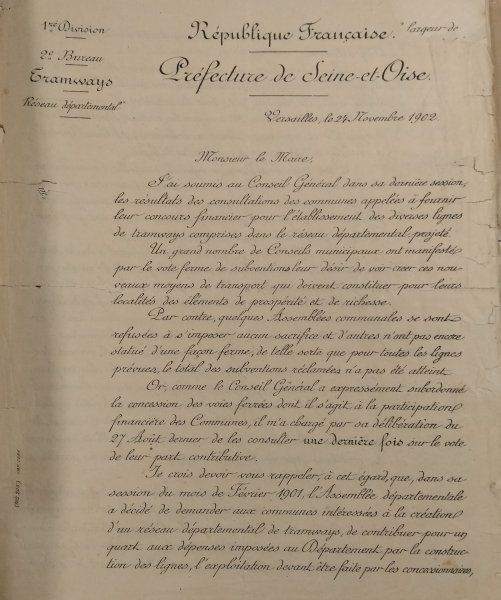 1re Division
2e Bureau
Tramways
Réseau départemental
République Française.
largeur de
Préfecture de Seine-et-Oise.
Versailles, le 24 Novembre 1902.
Monsieur le Maire,
J'ai soumis au Conseil Général dans sa dernière session,
les résultats des consultations des communes appelées à fournir
leur concours financier pour l'établissement des diverses lignes
de tramways comprises dans le réseau départemental projeté
Un grand nombre de Conseils municipaux ont manifesté
par le vote ferme de subventions leur désir de voir créer ces nou-
veaux moyens de transport qui doivent constituer pour leurs
localités des éléments de prospérité et de richesse.
Par contre, quelques Assemblées communales se sont
refusées à s'imposer aucun sacrifice et d'autres n'ont pas encore
statué d'une façon ferme, de telle sorte que pour toutes les lignes
prévues, le total des subventions réclamées n'a pas été atteint.
Or, comme le Conseil Général a expressément subordonné
la concession des voies ferrées dont il s'agit à la participation
financière des Communes, il m'a chargé par sa délibération du
27 Août dernier de les consulter une dernière fois sur le vote
de leur part contributive.
Je crois devoir vous rappeler, à cet égard, que, dans sa
session du mois de Février 1901, l'Assemblée départementale
a décidé de demander aux communes intéressées à la création
d'un réseau départemental de tramways, de contribuer pour un
quart aux dépenses imposées au Département par la construc-
tion des lignes, l'exploitation devant être faite par les concessionnaires,